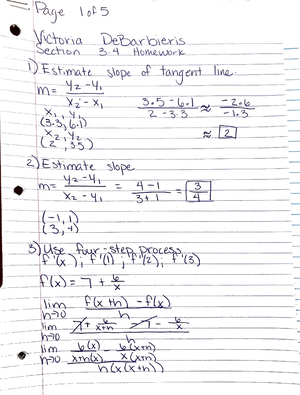 Page 1 of 5
Victoria DeBarbieris
Section 3.4 Homework
1) Estimate slope of tangent line.
m = y₂ - y₁ / x₂ - x₁
3.5 - 6.1 / 2 - 3.3 ≈ -2.6 / -1.3
x₁, y₁
(3.3, 6.1)
x₂, y₂
(2, 3.5)
≈ 2
2) Estimate slope
m = y₂ - y₁ / x₂ - y₁ = 4 - 1 / 3 + 1 = 3/4
(-1, 1)
(3, 4)
3) Use four-step process
f'(x); f'(1); f'(2); f'(3)
f(x) = 7 + 6/x
lim h→0 f(x+h) - f(x) / h
lim h→0 7 + 6/x+h - 7 - 6/x / h
lim h→0 6(x)/x+h(x) - 6(x+h)/x(x+h) / h(x(x+h))